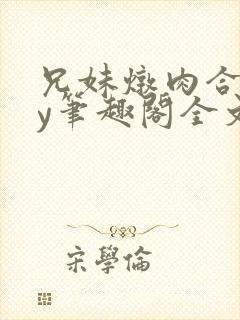 兄妹燉肉合
y筆趣閣全文
宋學倫